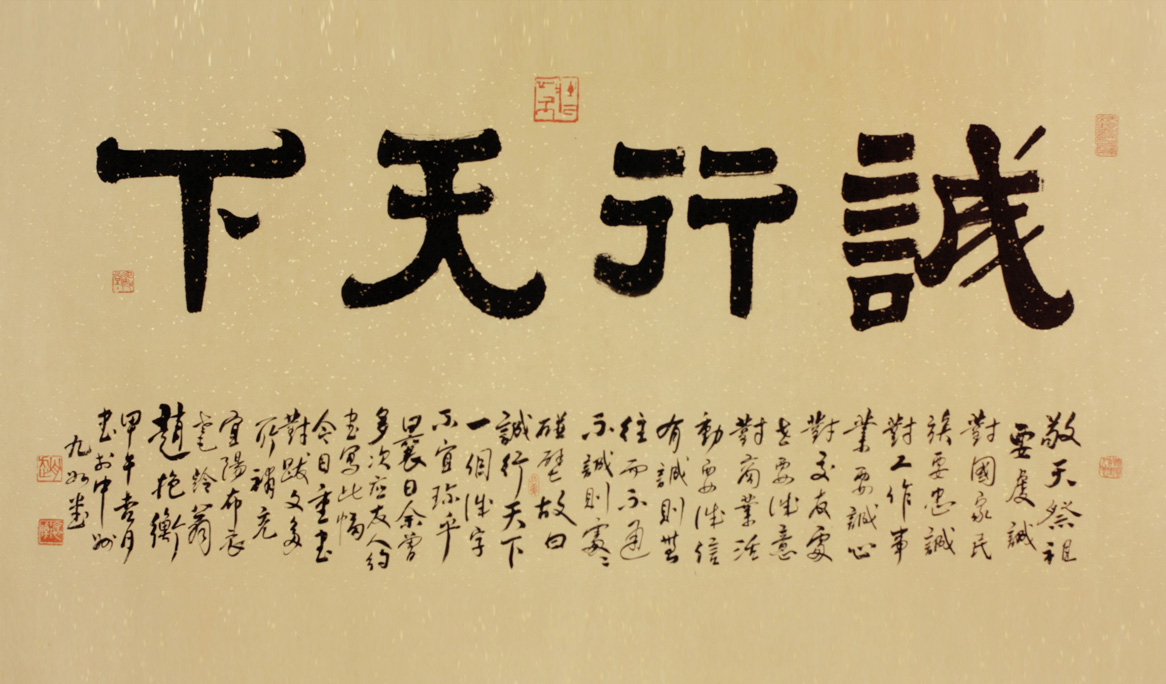 誠行天下
敬天祭祖
要虔誠
對國家民
族要忠誠
對工作事
業要誠心
對交友處
世要誠意
對商業活
動要誠信
有誠則無
往而不通
不誠則處々
碰壁故曰
誠行天下
一個誠字
不宜
曩日余曾
多次应友人約
书寫此幅
今日重书
對跋文多
所補充
宜陽布衣
趙抱衡
甲午
书於中州
九州